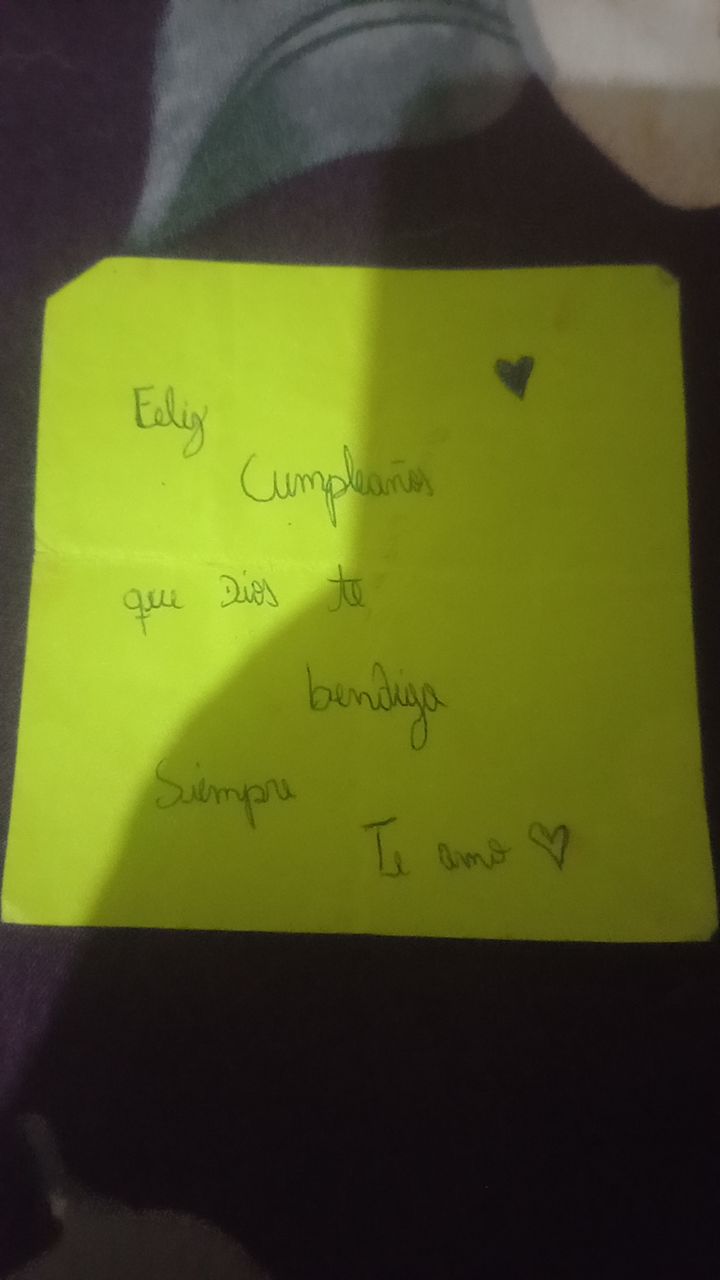 Feliz
Cumpleaños
que Dios te
bendiga
Siempre
Te amo ♡